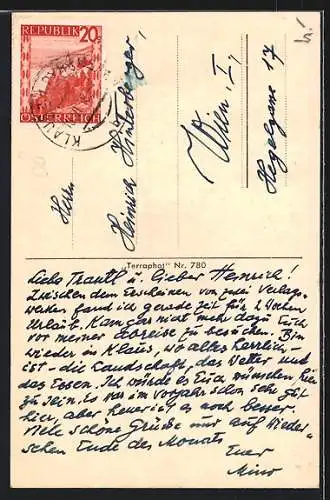 REPUBLIK
20g
ÖSTERREICH
KLAUS
Herrn
Heinrich Hinterberger,
Wien, I,
Hegelgasse 17
"Terraphot" Nr. 780
Liebe Trautl u. lieber Heinrich!
Zwischen dem Erscheinen von zwei Verlags-
werken fand ich gerade Zeit für 2 Wochen
Urlaub. Kam gar nicht mehr dazu Euch
vor meiner Abreise zu besuchen. Bin
wieder in Klaus, wo alles herrlich
ist – die Landschaft, das Wetter und
das Essen. Ich würde es Euch wünschen hier
zu sein. Es war im Vorjahr schon sehr gut
hier, aber heuer ist es noch besser.
Viele schöne Grüsse und auf Wieder-
sehen Ende des Monats
Euer